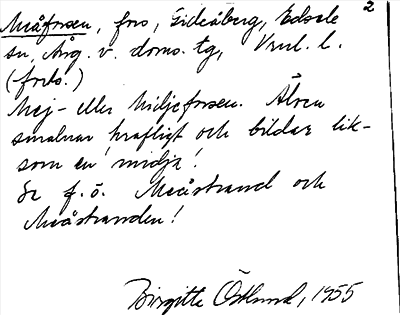 2
Meåforsen, fors, Gideåberg, Edsele
sn, Ång. v. doms. tg, l.
(-fors.)
Mej- eller Midjeforsen. Älven
smalnar kraftigt och bildar lik-
som en 'midja'.
Se f.ö. Meåstrand och
Meåstranden!
Birgitta Östlund, 1955